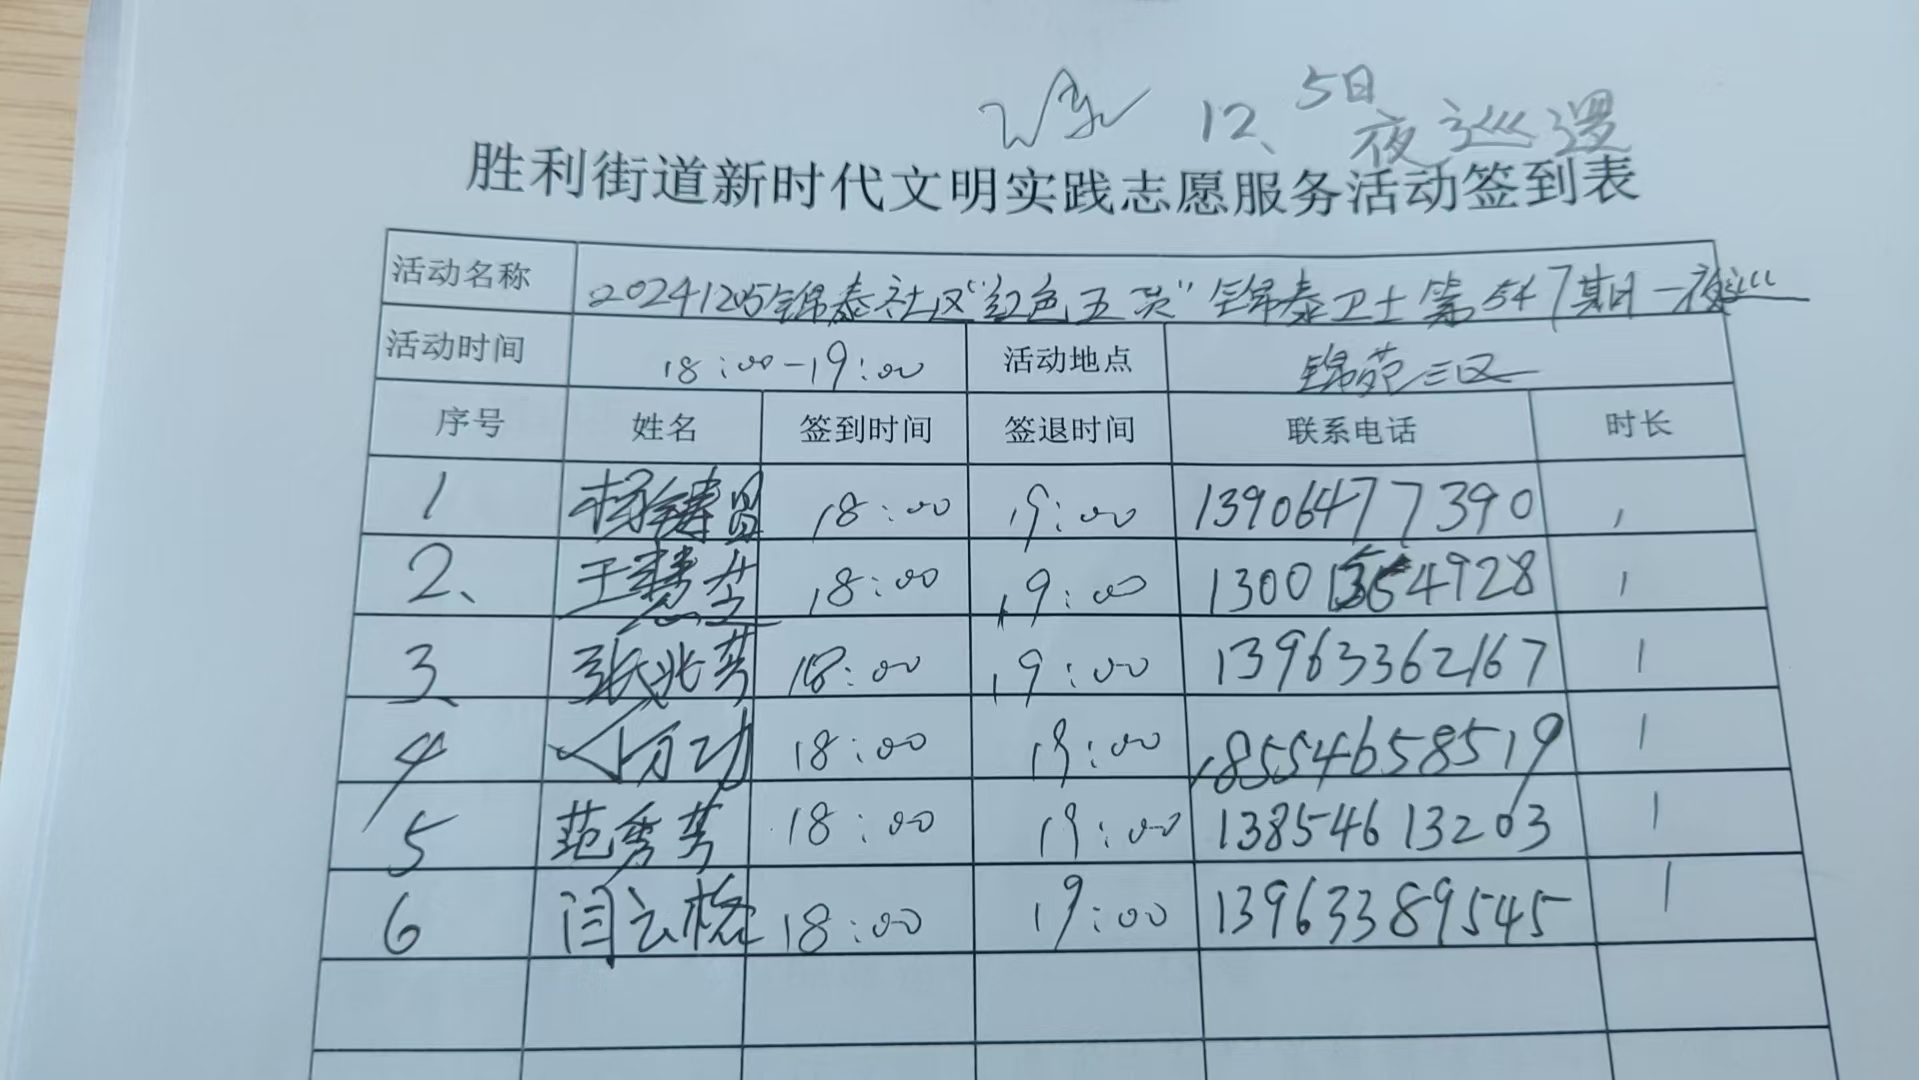 12、5日
夜巡逻
胜利街道新时代文明实践志愿服务活动签到表
活动名称 20241205锦泰社区“红色五员”锦泰卫士第547期一夜巡
活动时间 18:00-19:00 活动地点 锦苑三区
序号 姓名 签到时间 签退时间 联系电话 时长
1 杨铸昌 18:00 19:00 13906477390 1
2、 王慧 18:00 19:00 4928 1
3、 张兆英 18:00 19:00 13963362167 1
4 18:00 19:00 18554658519 1
5 范秀英 18:00 19:00 13854613203 1
6 闫云 18:00 19:00 13963389545 1